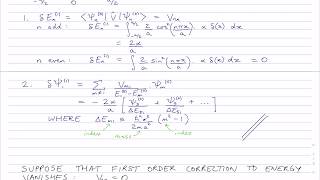 1. δE_n^(1) = ⟨Ψ_n^(0)|V̂|Ψ_n^(0)⟩ = V_nn
n odd: δE_n^(1) = ∫_{-a/2}^{a/2} 2/a cos²(nπx/a) α δ(x) dx
= 2α/a
n even: δE_n^(1) = ∫ 2/a sin²(nπx/a) α δ(x) dx = 0
2. δΨ_1^(1) = Σ_{m≠1} V_m1/ΔE_m1 Ψ_m^(0)
= - 2α/a [ Ψ_3^(0)/ΔE_31 + Ψ_5^(0)/ΔE_51 + ... ]
WHERE ΔE_m1 = ħ²π²/2ma² (m² - 1)
index mass index
SUPPOSE THAT FIRST ORDER CORRECTION TO ENERGY
VANISHES: = 0